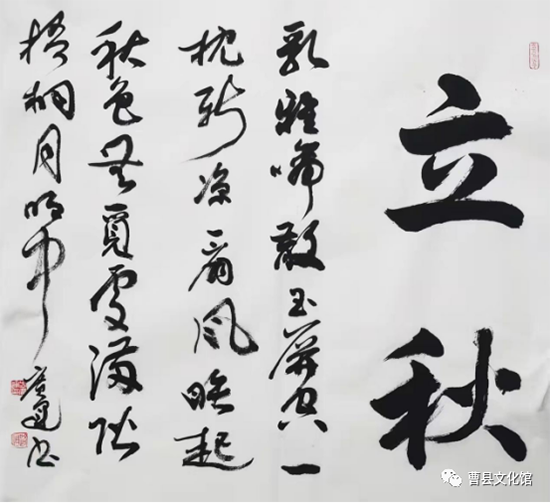 立秋
乳鸦啼散玉屏空一
枕新凉一扇风睡起
秋色无觅处满阶
梧桐月明中
书
曹县文化馆